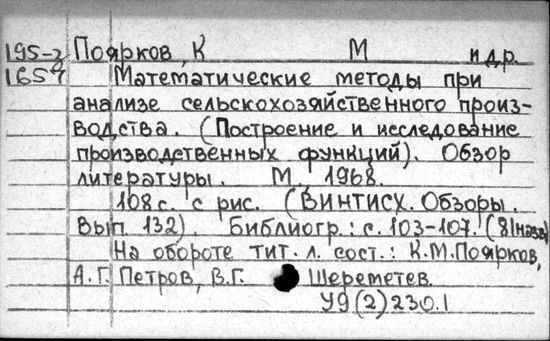 195-2 Поярков, К М и др.
1657 Математические методы при
анализе сельскохозяйственного произ-
водства. (Построение и исследование
производственных функций). Обзор
литературы. М. 1968.
108 с. с рис. (ВИНТИСХ. Обзоры.
Вып. 132). Библиогр.: с. 103-107. (81 назв)
На обороте тит. л. сост.: К.М. Поярков,
А.Г. Петров, В.Г. Шереметев.
У9(2)230.1